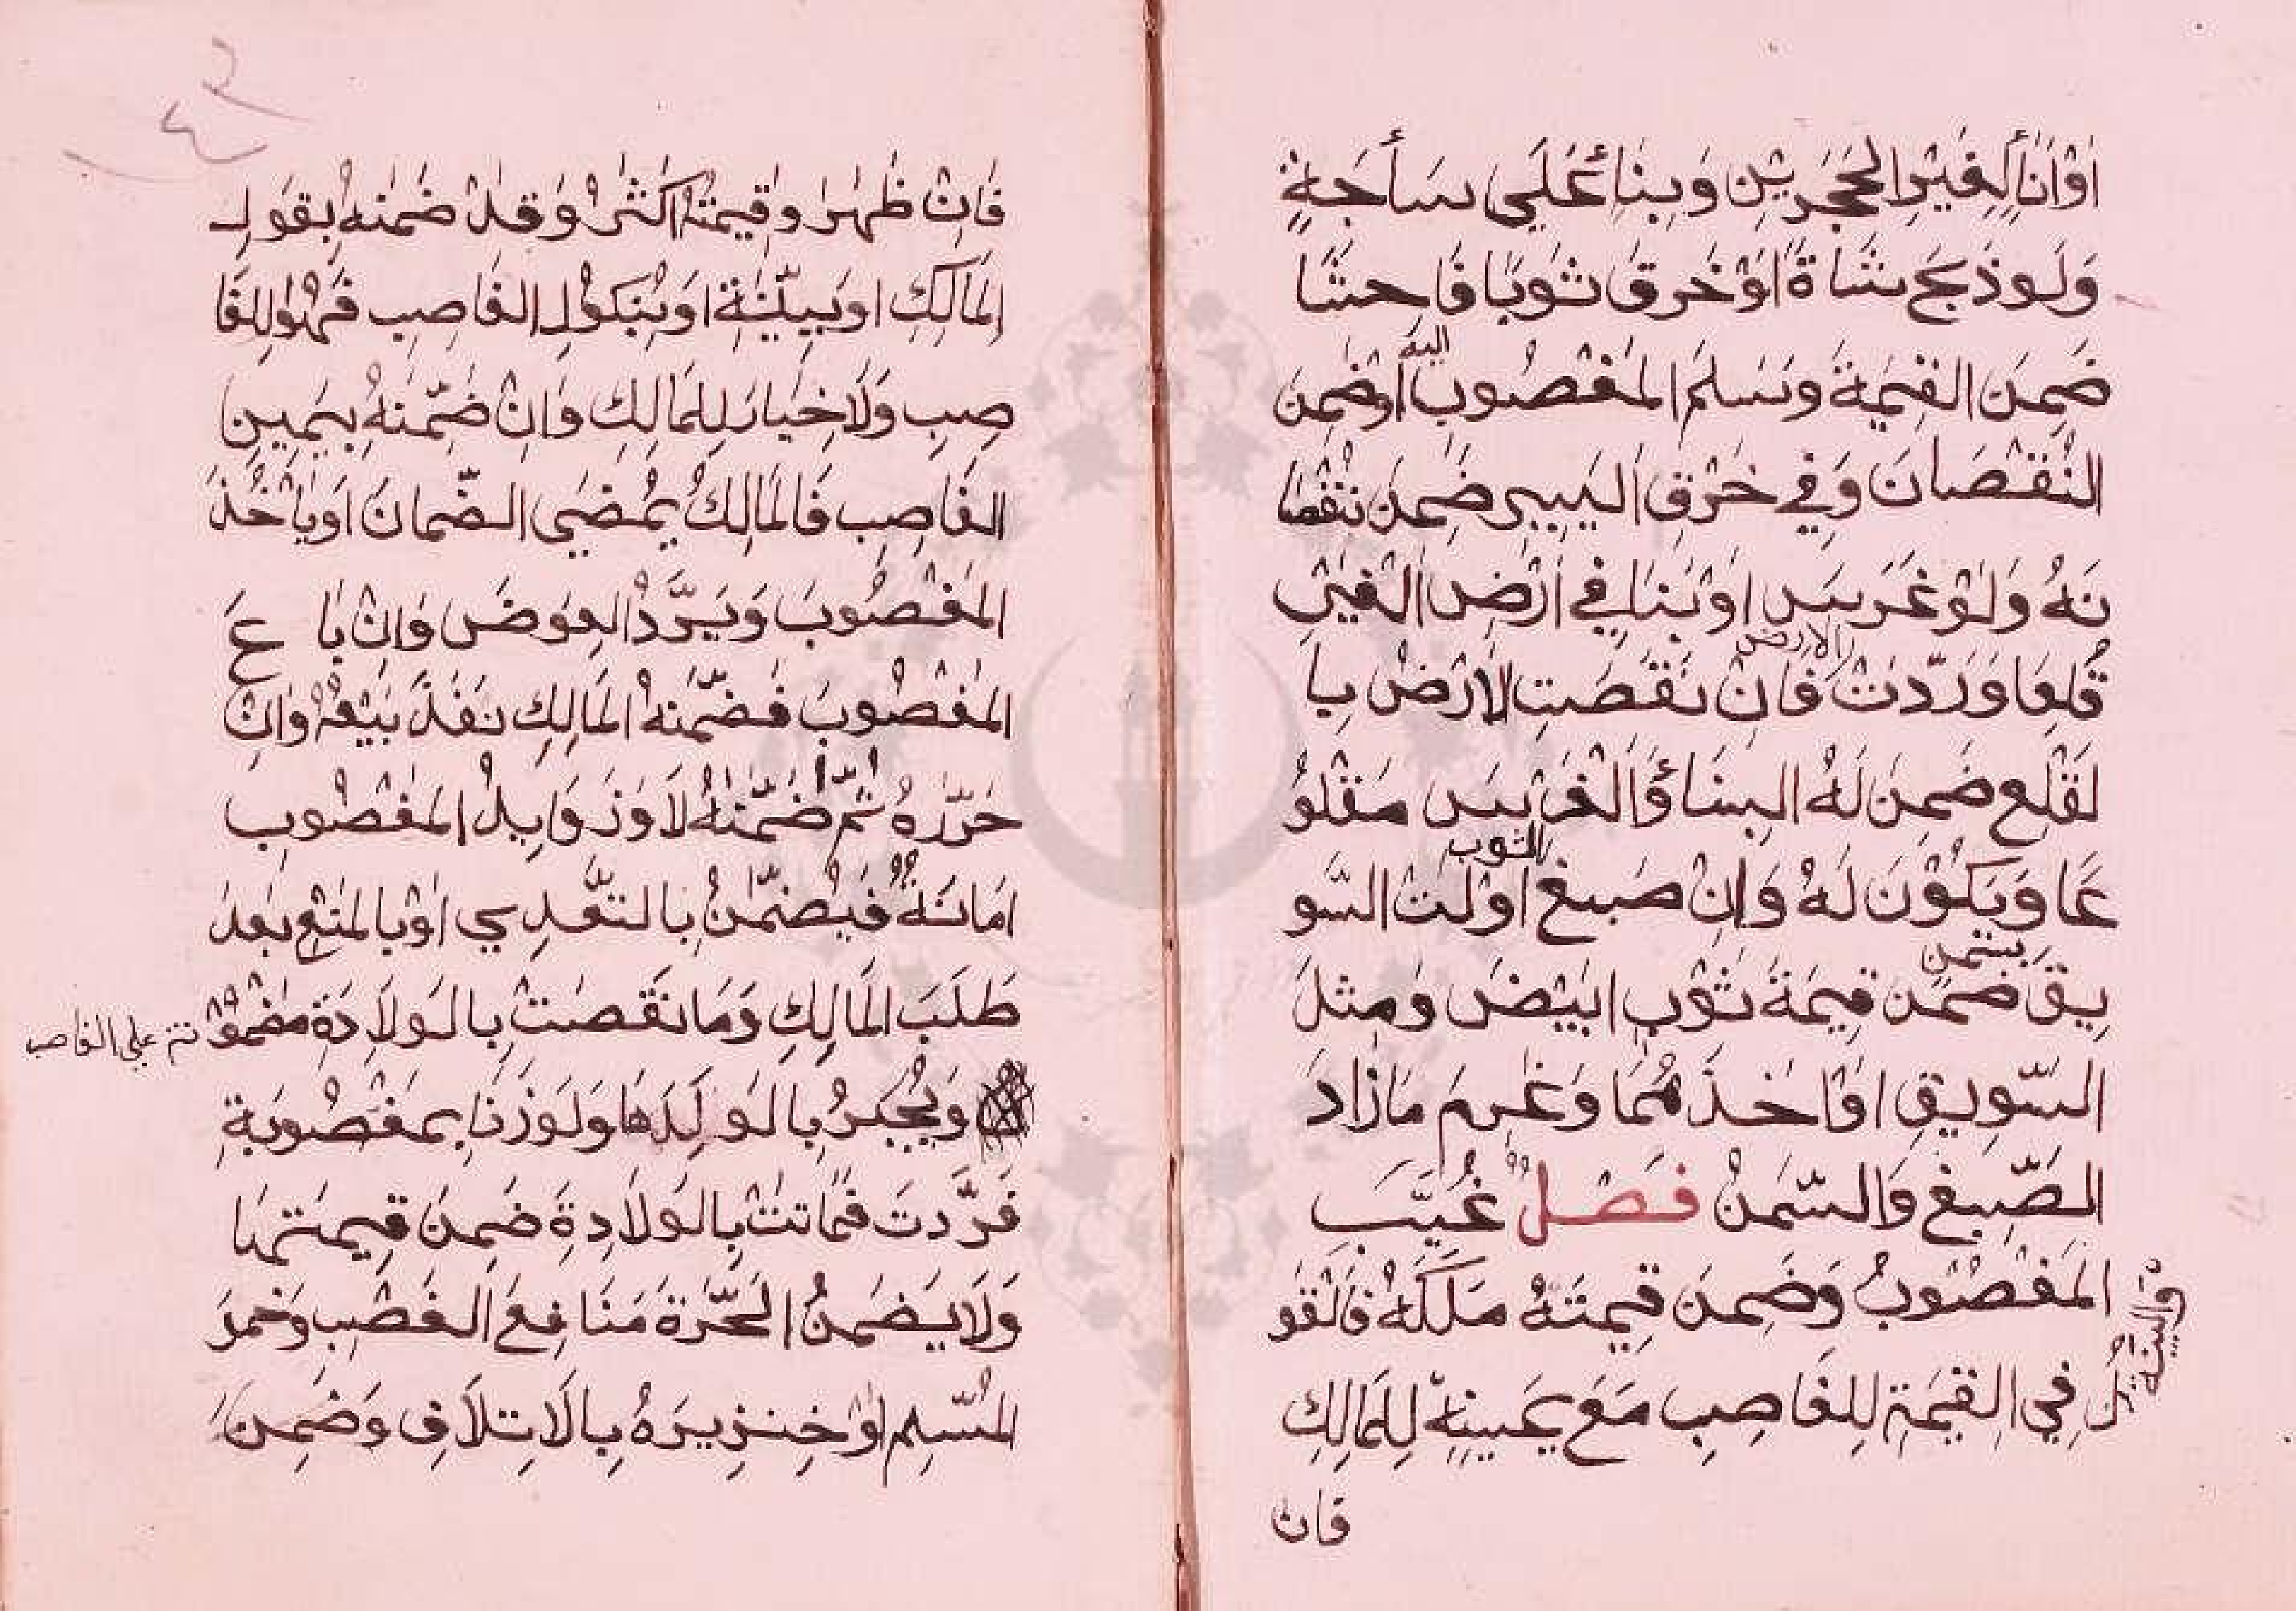 اَوْ اَنَاءً لِغَيْرِ الحَجَرَيْنِ وَبِنَاءٌ عَلَي سَأجَةٍ
وَلَوذَبَحَ شَاةً اَوْخَرقَ ثَوبًا فَاحشًا
ضَمِنَ القِيْمَةَ وَسَلَّمَ المَغْصُوبَ اليه اَوْضَمِنَ
النُّقْصَانَ وَفِي خَرْقِ اليَسِيرِ ضَمِنَ نُقْصَا
نَهُ وَلَوْ غَرَسَ اَوْ بَنَا فِي اَرْضِ الغَيْرِ
قُلِعَا وَرُدَّتْ الارض فَانْ نَقَصَتِ الاَرْضُ بِا
لقَلْعِ ضَمِنَ لَهُ البِنَاءُ وَالْغَرْسَ مَقْلُو
عًا وَيَكُوْنَ لَهُ وَاِنْ صَبغَ الثوب اَوْلَتَّ السَّو
يِقَ بسَمْنٍ ضَمِنَ قِيمَةَ ثَوْبٍ اَبْيَضَ وَمِثْلَ
السَّوِيقِ اَوْاَخَذَهُمَا وَغَرِمَ مَازَادَ
الصِّبغَ وَالسَّمَنُ فَصْلٌ غُيِّبَ
المَغْصُوبُ وَضَمِنَ قِيمَتَهُ مَلَكَهُ فَالْقَو
لُ فِي القِيْمَةِ لِلغَاصِبِ مَعَ يَمِينِهِ لِلمَالِكِ
والبينة
فان
فَاِنْ ظَهَرَ وَقِيمَتُهُ اَكْثَرُ وَقَدْ ضَمَنَهُ بِقَولِ
المَالِكِ اوبَبَيِّنَةٍ اَوبِنَكُوْلِ الغَاصِبِ فَهُوَ لِلغَا
صِبِ وَلَاخِيَارَ لِلمَالِكِ وَاِنْ ضَمَّنَهُ بِيَمِينِ
الغَاصِبِ فَالمَالِكُ يُمْضَيِ الضَّمانَ اَوياْخُذَ
المَغْصُوبَ وَيَرُدُّ العِوَضَ وَاِنْ بَا عَ
المَغْصُوبَ فَضَمَّنَهُ المَالِكِ نَفَذَ بَيْعُهُ وَاِنْ
حَرَّرَهُ ثُمَّ ضَمَّنَهُ لَا وَزَوَايِدُ المَغْصُوبِ
اَمَانَةٌ فَيُضْمَنُ بِالتَّعَدِي اَوْبالمَنْعِ بَعْدَ
طَلَبَ المَالِكِ وَمَا نَقَصَتْ بِالوَلاَدَةِ مَضْمُوْ
نتم علي الغاصب
وَيُجْبَرُ بِالوَلَدِهَا وَلَوزَنَا بِمَغْصُوبَةٍ
فَرُدَّتَ فَمَاتتْ بِالوَلاَدِةِ ضَمِنَ قِيمَتهَا
وَلَايَضْمَنُ الحُرَّةَ مَنَافِعَ الغَصْبِ وَخَمرَ
المُسْلِمِ اَوْ خِنزِيرَهُ بِالاَتِلَافِ وَضَمِنَ